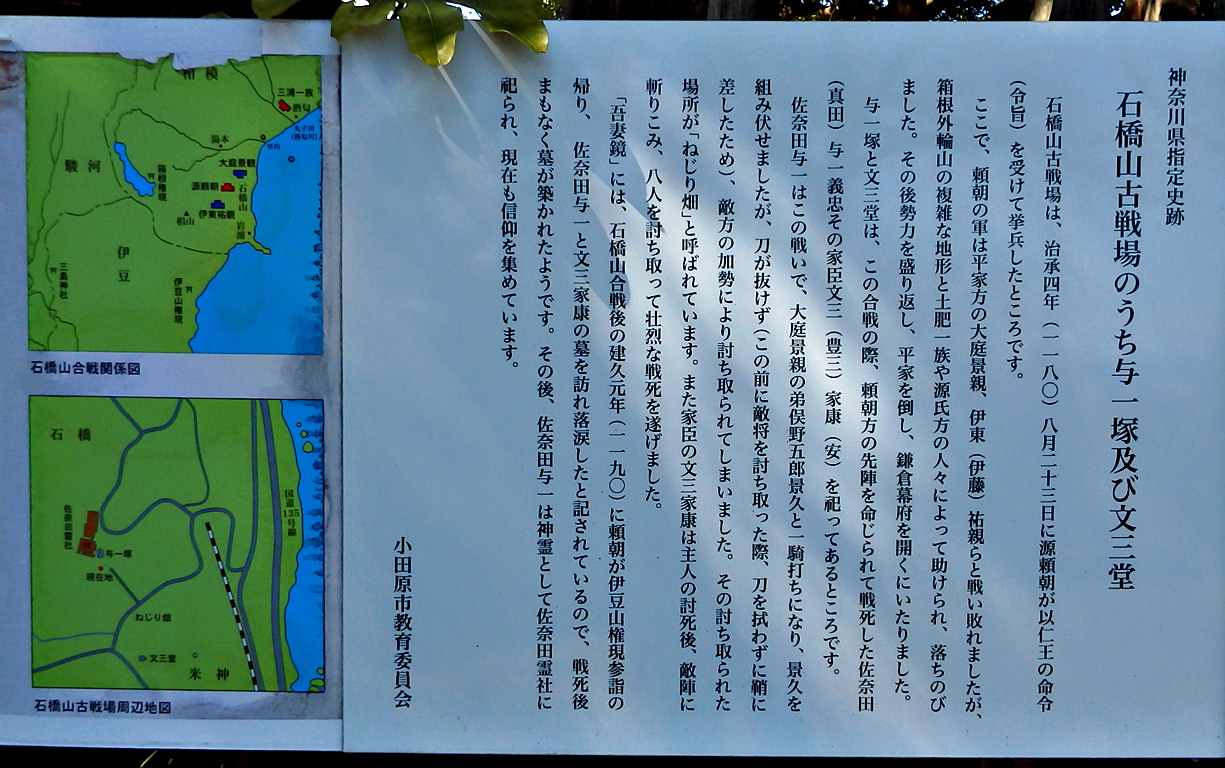 神奈川県指定史跡
石橋山古戦場のうち与一塚及び文三堂
石橋山古戦場は、治承四年（一一八〇）八月二十三日に源頼朝が以仁王の命令
（令旨）を受けて挙兵したところです。
ここで、頼朝の軍は平家方の大庭景親、伊東（伊藤）祐親らと戦い敗れましたが、
箱根外輪山の複雑な地形と土肥一族や源氏方の人々によって助けられ、落ちのび
ました。その後勢力を盛り返し、平家を倒し、鎌倉幕府を開くにいたりました。
与一塚と文三堂は、この合戦の際、頼朝方の先陣を命じられて戦死した佐奈田
（真田）与一義忠その家臣文三（豊三）家康（安）を祀ってあるところです。
佐奈田与一はこの戦いで、大庭景親の弟俣野五郎景久と一騎打ちになり、景久を
組み伏せましたが、刀が抜けず（この前に敵将を討ち取った際、刀を拭わずに鞘に
差したため）、敵方の加勢により討ち取られてしまいました。その討ち取られた
場所が「ねじり畑」と呼ばれています。また家臣の文三家康は主人の討死後、敵陣に
斬りこみ、八人を討ち取って壮烈な戦死を遂げました。
「吾妻鏡」には、石橋山合戦後の建久元年（一一九〇）に頼朝が伊豆山権現参詣の
帰り、佐奈田与一と文三家康の墓を訪れ落涙したと記されているので、戦死後
まもなく墓が築かれたようです。その後、佐奈田与一は神霊として佐奈田霊社に
祀られ、現在も信仰を集めています。
小田原市教育委員会
相模
三浦一族
酒匂
丸子川
(酒匂川)
早川
湯本
大庭景親
源頼朝
石橋山
伊東祐親
箱根権現
椙山
岩浦
駿河
伊豆
三島神社
伊豆山権現
石橋山合戦関係図
石橋
国道135号線
佐奈田霊社
与一塚
現在地
ねじり畑
文三堂
米神
石橋山古戦場周辺地図